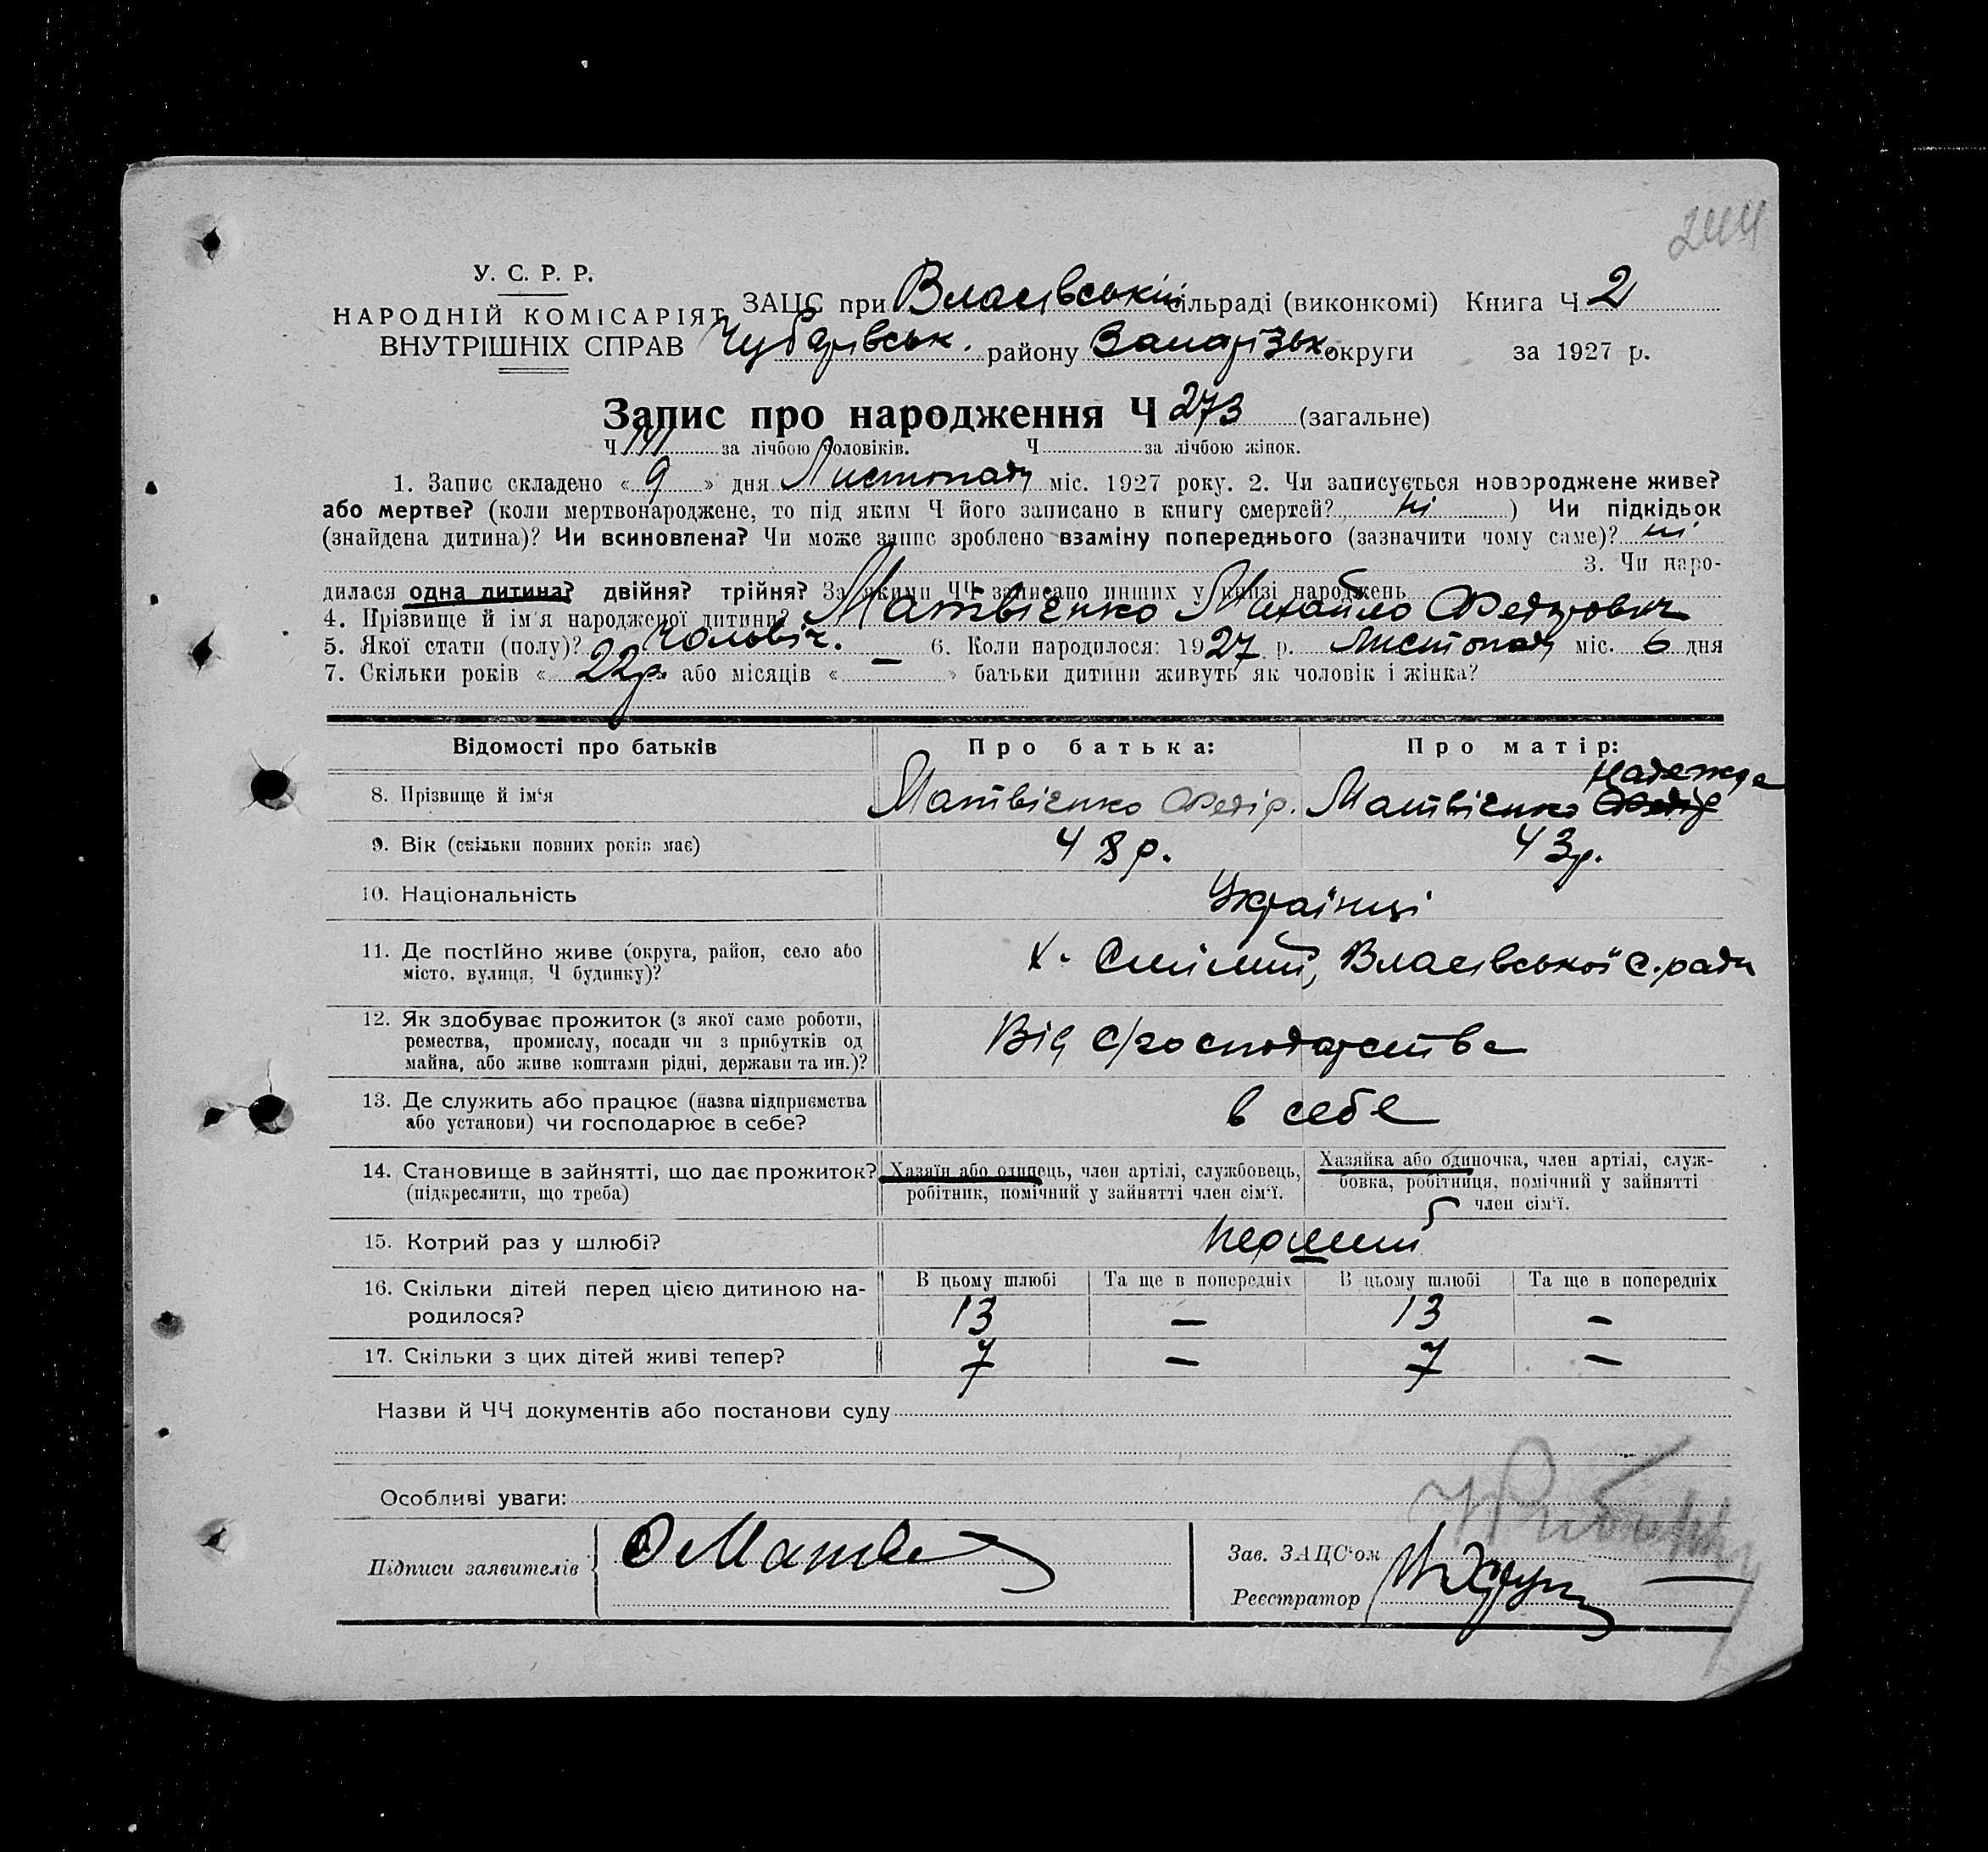 244
У. С. Р. Р.
НАРОДНІЙ КОМІСАРІЯТ
ВНУТРІШНІХ СПРАВ
ЗАЦС при Власівській сільраді (виконкомі) Книга Ч 2
Чубарівськ. району Запорізьк. округи за 1927 р.
Запис про народження Ч 273 (загальне)
Ч 141 за лічбою чоловіків. Ч за лічбою жінок.
1. Запис складено « 9 » дня Листопаду міс. 1927 року. 2. Чи записується новороджене живе?
або мертве? (коли мертвонароджене, то під яким Ч його записано в книгу смертей? ні ) Чи підкідьок
(знайдена дитина)? Чи всиновлена? Чи може запис зроблено взаміну попереднього (зазначити чому саме)? ні
3. Чи наро-
дилася одна дитина? двійня? трійня? За якими ЧЧ записано инших у книзі народжень
4. Прізвище й ім'я народженої дитини? Матвієнко Михайло Федорович
5. Якої стати (полу)? чоловіч. 6. Коли народилося: 1927 р. Листопаду міс. 6 дня
7. Скільки років « 22р. або місяців « — » батьки дитини живуть як чоловік і жінка?
Відомості про батьків Про батька: Про матір:
Надежда
8. Прізвище й ім'я Матвієнко Федір. Матвієнко Федір
9. Вік (скільки повних років має) 48р. 43р.
10. Національність Українці
11. Де постійно живе (округа, район, село або
місто, вулиця, Ч будинку)? х. Смілий, Власівської с.ради
12. Як здобуває прожиток (з якої саме роботи,
ремества, промислу, посади чи з прибутків од
майна, або живе коштами рідні, держави та ин.)? Від с/господарства
13. Де служить або працює (назва підприємства
або установи) чи господарює в себе? в себе
14. Становище в зайнятті, що дає прожиток?
(підкреслити, що треба)
Хазяїн або одинець, член артілі, службовець,
робітник, помічний у зайнятті член сім'ї.
Хазяйка або одиночка, член артілі, служ-
бовка, робітниця, помічний у зайнятті
член сім'ї.
15. Котрий раз у шлюбі? перший
В цьому шлюбі Та ще в попередніх В цьому шлюбі Та ще в попередніх
16. Скільки дітей перед цією дитиною на-
родилося? 13 — 13 —
17. Скільки з цих дітей живі тепер? 7 — 7 —
Назви й ЧЧ документів або постанови суду
Особливі уваги:
Підписи заявителів
Зав. ЗАЦС'ом
Реєстратор